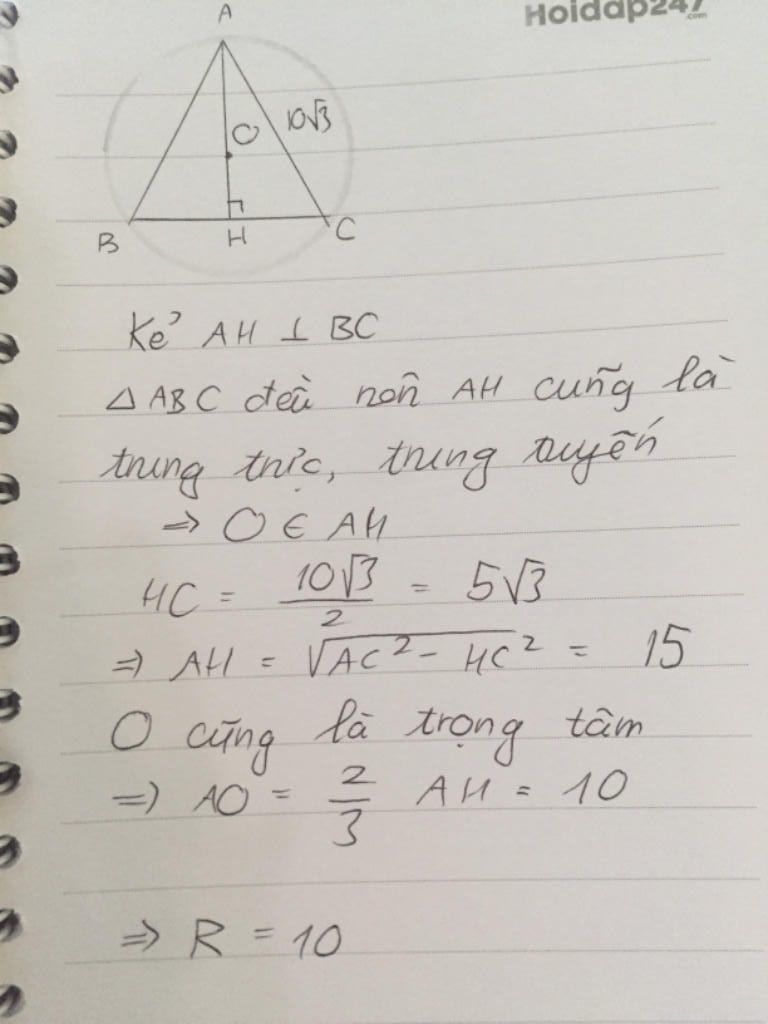 Hoidap247
.com
A
O
10√3
B
H
C
Kẻ AH ⊥ BC
△ABC đều nên AH cũng là
trung trực, trung tuyến
=> O ∈ AH
HC = 10√3/2 = 5√3
=> AH = √AC² - HC² = 15
O cũng là trọng tâm
=> AO = 2/3 AH = 10
=> R = 10